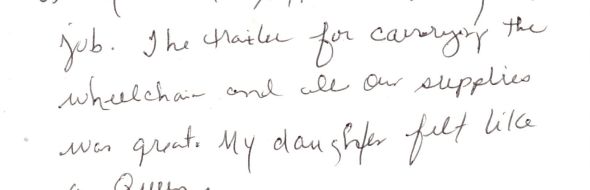 job. The trailer for carrying the
wheelchair and all our supplies
was great. My daughter felt like
a Queen.